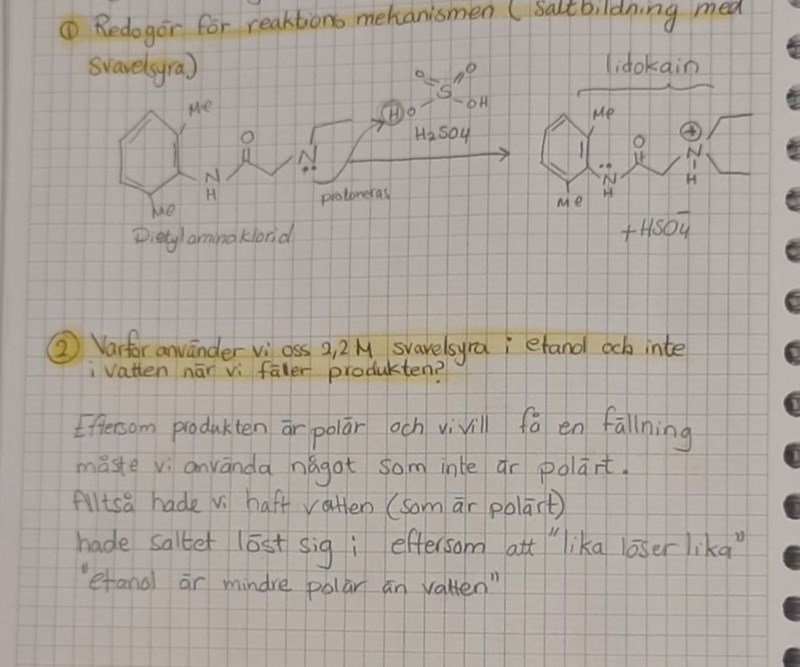 ① Redogör för reaktions mekanismen ( saltbildning med
svavelsyra)
lidokain
Me
O
N
H
N
protoneras
O
O
S
HO
OH
H₂SO₄
Me
O
N
H
⊕
N
H
Me
Me
Dietylaminoklorid
+HSO₄⁻
② Varför använder vi oss 2,2M svavelsyra i etanol och inte
i vatten när vi fäller produkten?
Eftersom produkten är polär och vi vill få en fällning
måste vi använda något som inte är polärt.
Alltså hade vi haft vatten (som är polärt)
hade saltet löst sig i eftersom att "lika löser lika"
"etanol är mindre polär än vatten"